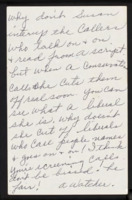 why don't Susan
interrup the Callers
who talk on & on
& read from a script
but when a Conservative
Calls she cuts them
off real soon. You can
see what a liberal
she is. Why doesn't
she cut off liberals
who call people names
& goes on & on I think
your screening calls
and be biased. Be
fair! a Watcher.